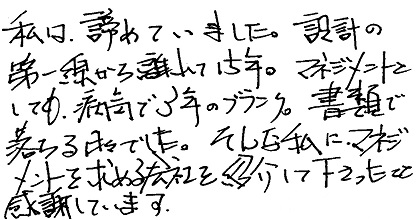 私は、諦めていました。設計の
第一線から離れて15年。マネジメントと
しても、病気で3年のブランク。書類で
落ちる日々でした。そんな私に、マネジ
メントを求める会社を紹介して下さったこと
感謝しています。